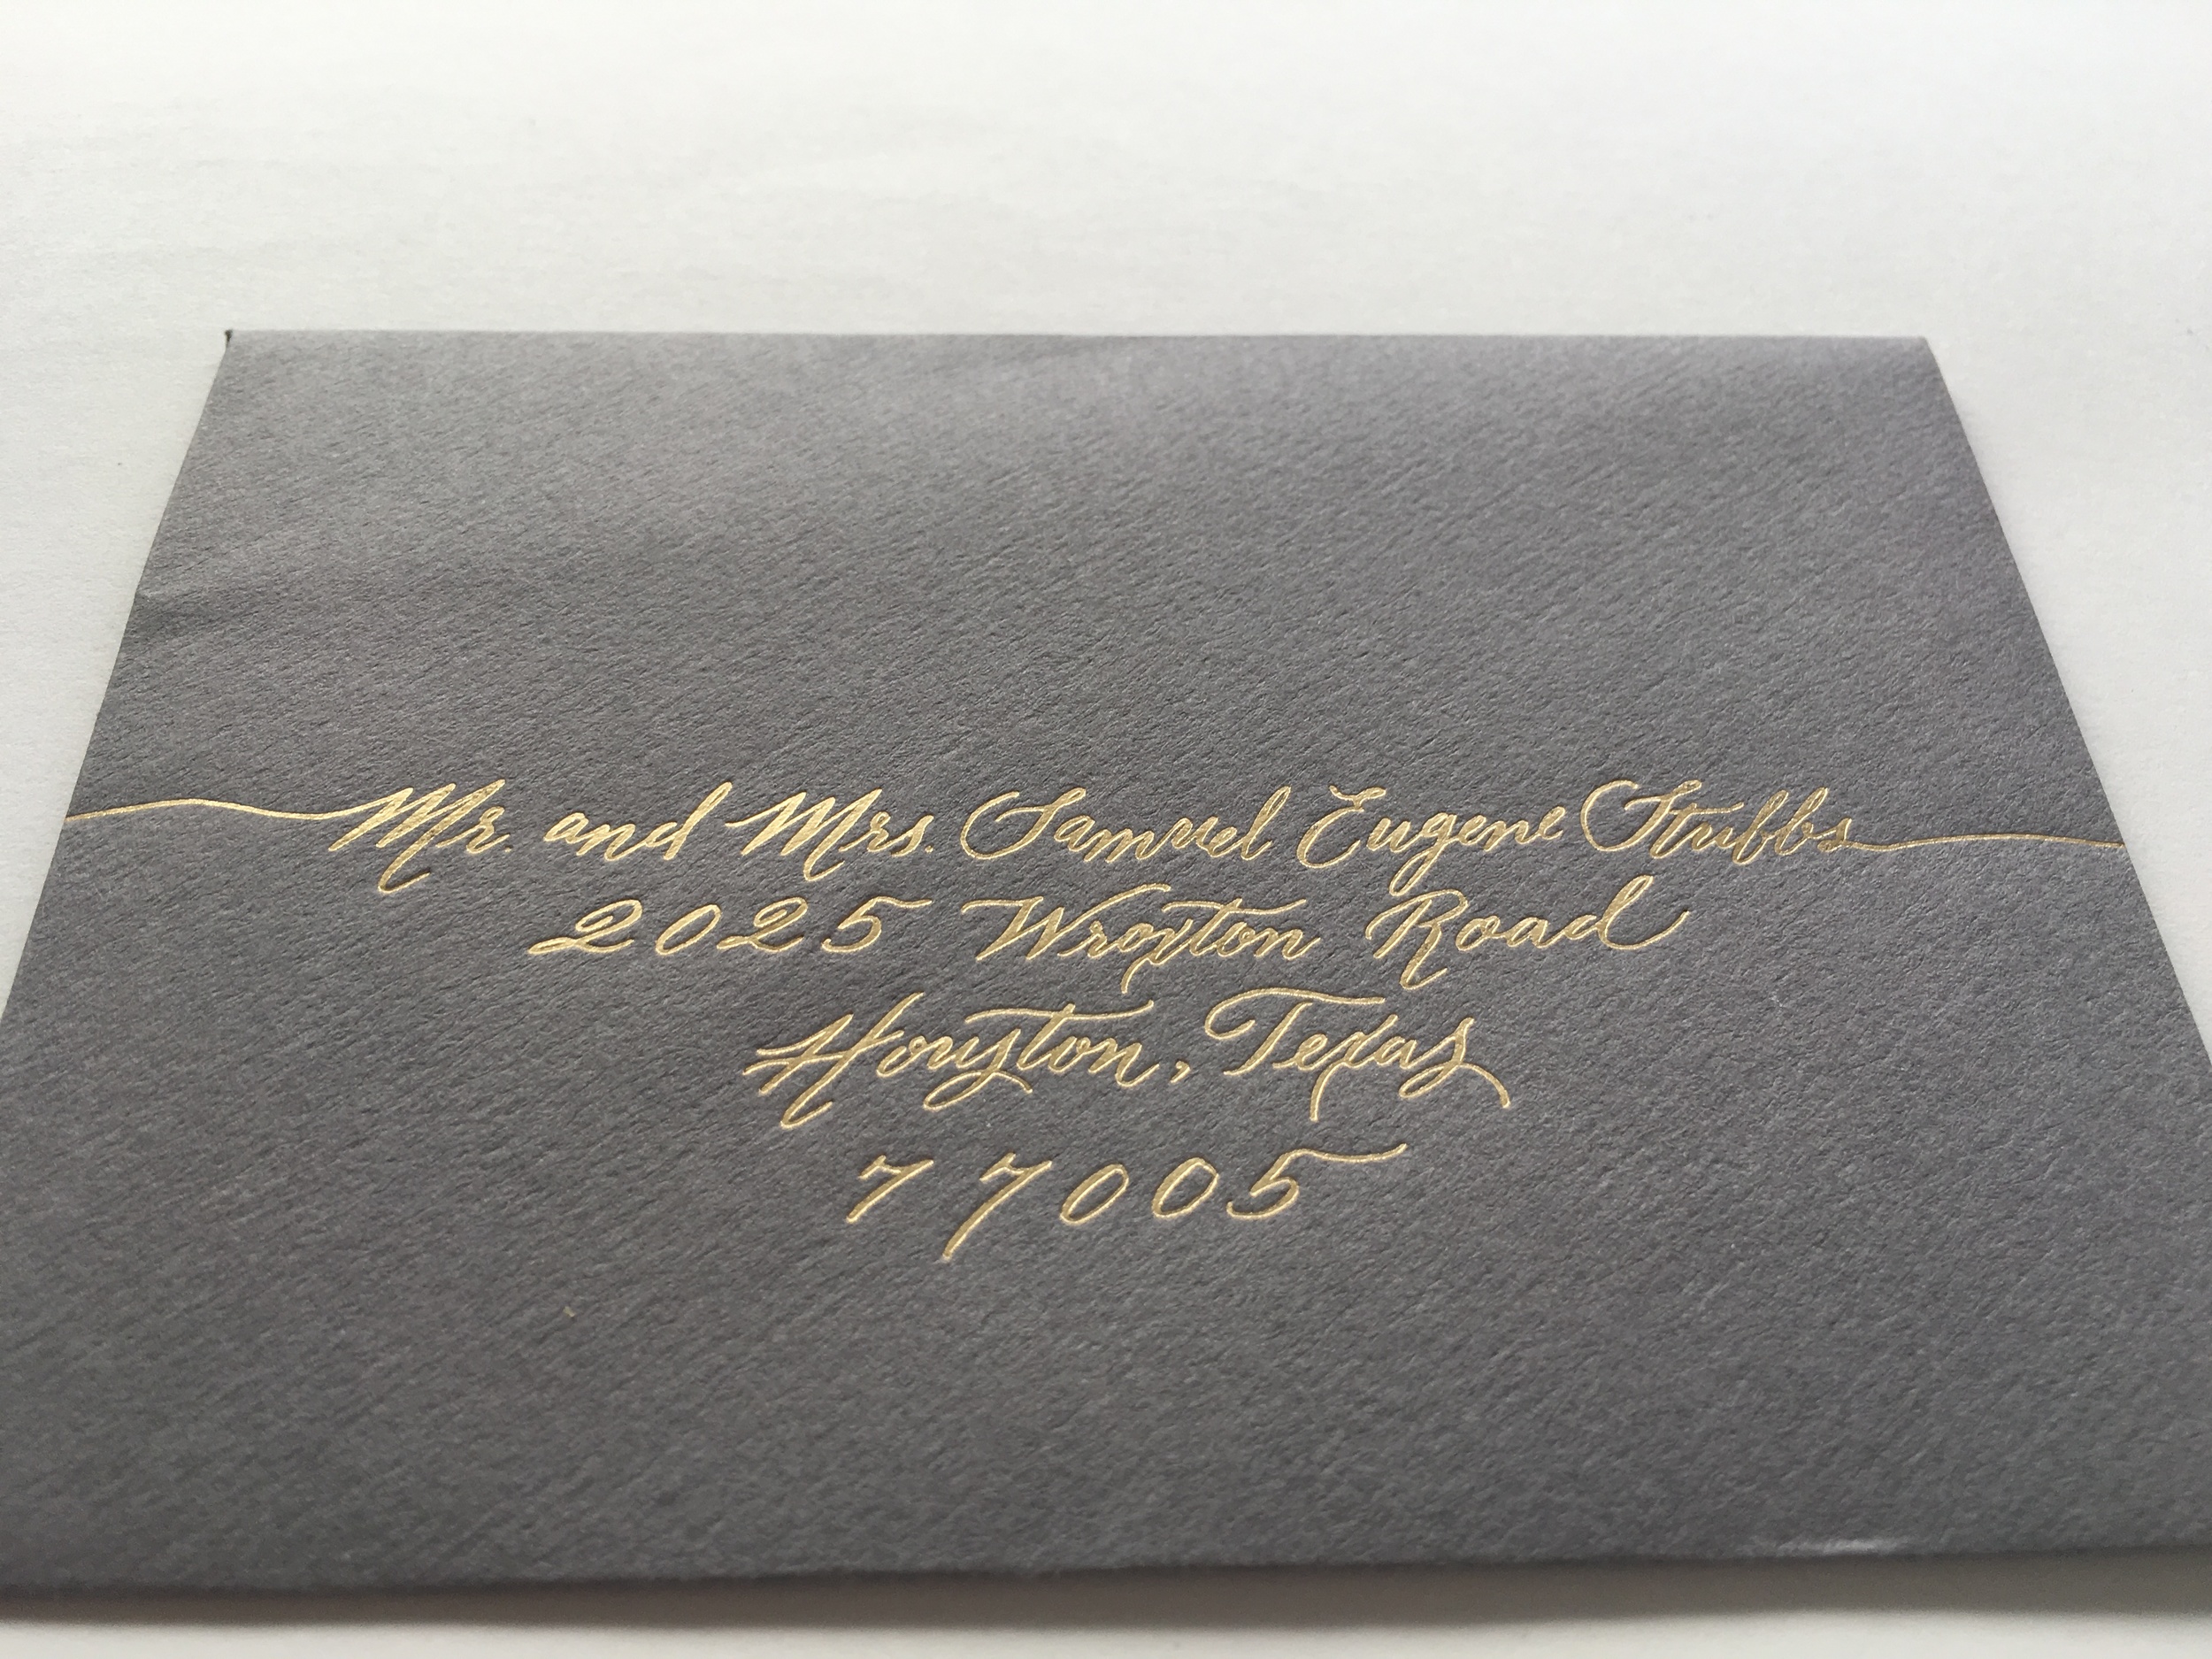 Mr. and Mrs. Samuel Eugene Stubbs
2025 Wroxton Road
Houston, Texas
77005